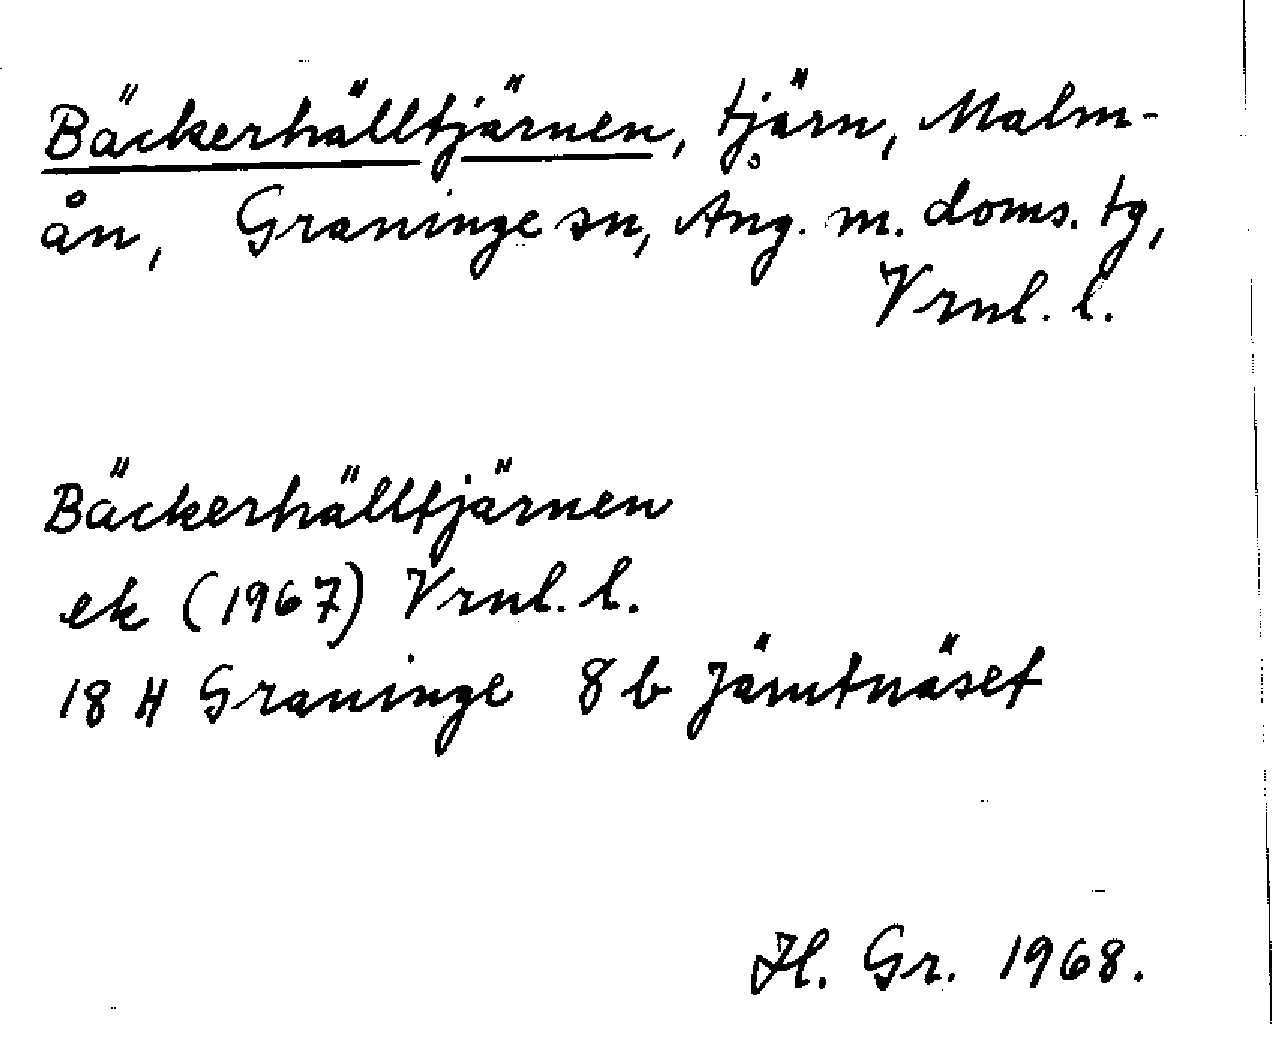 Bäckerhälltjärnen, tjärn, Malm-
ån, Graninge sn, Ång. m. doms. tg,
Vrnl. l.
Bäckerhälltjärnen
ek (1967) Vrnl. l.
18 H Graninge 8 b Jämtnäset
H. Gr. 1968.